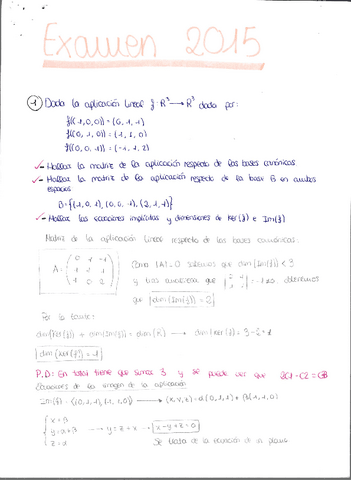 Examen 2015
1 Dada la aplicación lineal f: R³ → R³ dada por:
f((1,0,0)) = (0,1,1)
f((0,1,0)) = (1,1,0)
f((0,0,1)) = (-1,1,2)
- Hallar la matriz de la aplicación respecto de las bases canónicas.
- Hallar la matriz de la aplicación respecto de la base B en ambos
espacios
B={(1,0,1), (0,0,1), (2,1,1)}
- Hallar las ecuaciones implícitas y dimensiones de Ker(f) e Im(f)
Matriz de la aplicación lineal respecto de las bases canónicas:
A =
Como |A|=0 sabemos que dim(Im(f)) < 3
que dim(Im(f)) = 2
Por lo tanto:
dim(Ker(f)) + dim(Im(f)) = dim(R) → dim(Ker(f)) = 3-2=1
dim(Ker(f)) = 1
P.D: En total tiene que sumar 3 y se puede ver que 2C1-C2=C3
Ecuaciones de la imagen de la aplicación
Im(f) = {(0,1,1),(1,1,0)} → (x,y,z) = α(0,1,1) + β(1,1,0)
x = β
y = α+β → y = z+x → x-y+z=0
z = α
Se trata de la ecuación de un plano